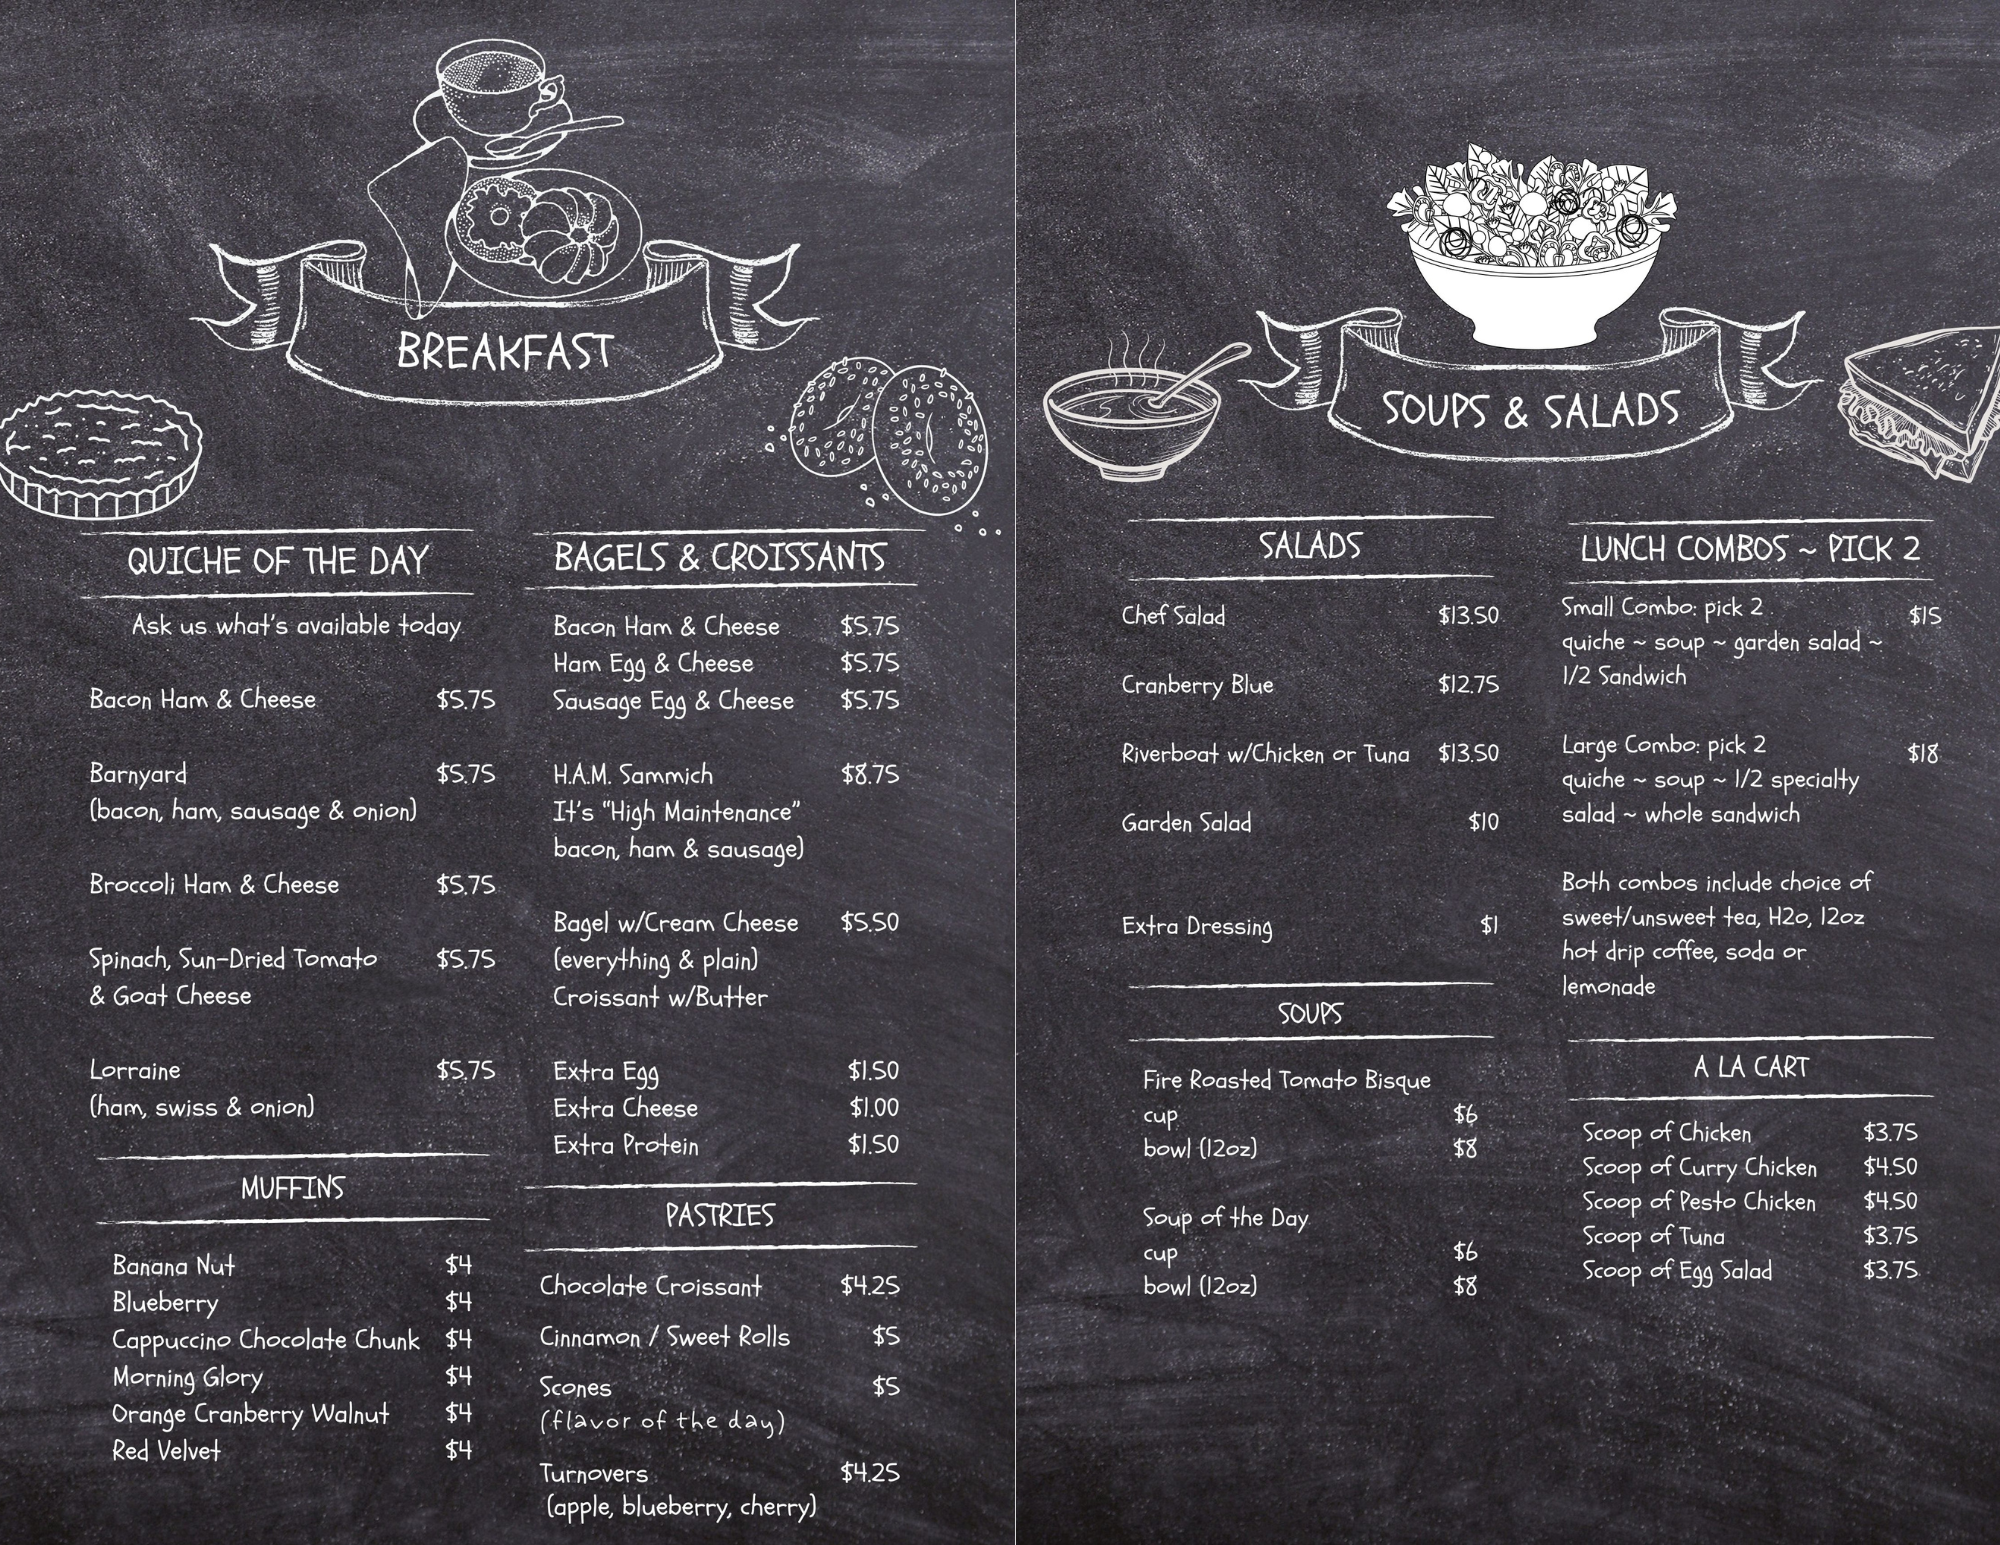 BREAKFAST
QUICHE OF THE DAY
Ask us what's available today
Bacon Ham & Cheese $5.75
Barnyard $5.75
(bacon, ham, sausage & onion)
Broccoli Ham & Cheese $5.75
Spinach, Sun-Dried Tomato $5.75
& Goat Cheese
Lorraine $5.75
(ham, swiss & onion)
MUFFINS
Banana Nut $4
Blueberry $4
Cappuccino Chocolate Chunk $4
Morning Glory $4
Orange Cranberry Walnut $4
Red Velvet $4
BAGELS & CROISSANTS
Bacon Ham & Cheese $5.75
Ham Egg & Cheese $5.75
Sausage Egg & Cheese $5.75
H.A.M. Sammich $8.75
It's "High Maintenance"
bacon, ham & sausage)
Bagel w/Cream Cheese $5.50
(everything & plain)
Croissant w/Butter
Extra Egg $1.50
Extra Cheese $1.00
Extra Protein $1.50
PASTRIES
Chocolate Croissant $4.25
Cinnamon / Sweet Rolls $5
Scones $5
(flavor of the day)
Turnovers $4.25
(apple, blueberry, cherry)
SOUPS & SALADS
SALADS
Chef Salad $13.50
Cranberry Blue $12.75
Riverboat w/Chicken or Tuna $13.50
Garden Salad $10
Extra Dressing $1
SOUPS
Fire Roasted Tomato Bisque
cup $6
bowl (12oz) $8
Soup of the Day
cup $6
bowl (12oz) $8
LUNCH COMBOS ~ PICK 2
Small Combo: pick 2 $15
quiche ~ soup ~ garden salad ~
1/2 Sandwich
Large Combo: pick 2 $18
quiche ~ soup ~ 1/2 specialty
salad ~ whole sandwich
Both combos include choice of
sweet/unsweet tea, H2o, 12oz
hot drip coffee, soda or
lemonade
A LA CART
Scoop of Chicken $3.75
Scoop of Curry Chicken $4.50
Scoop of Pesto Chicken $4.50
Scoop of Tuna $3.75
Scoop of Egg Salad $3.75